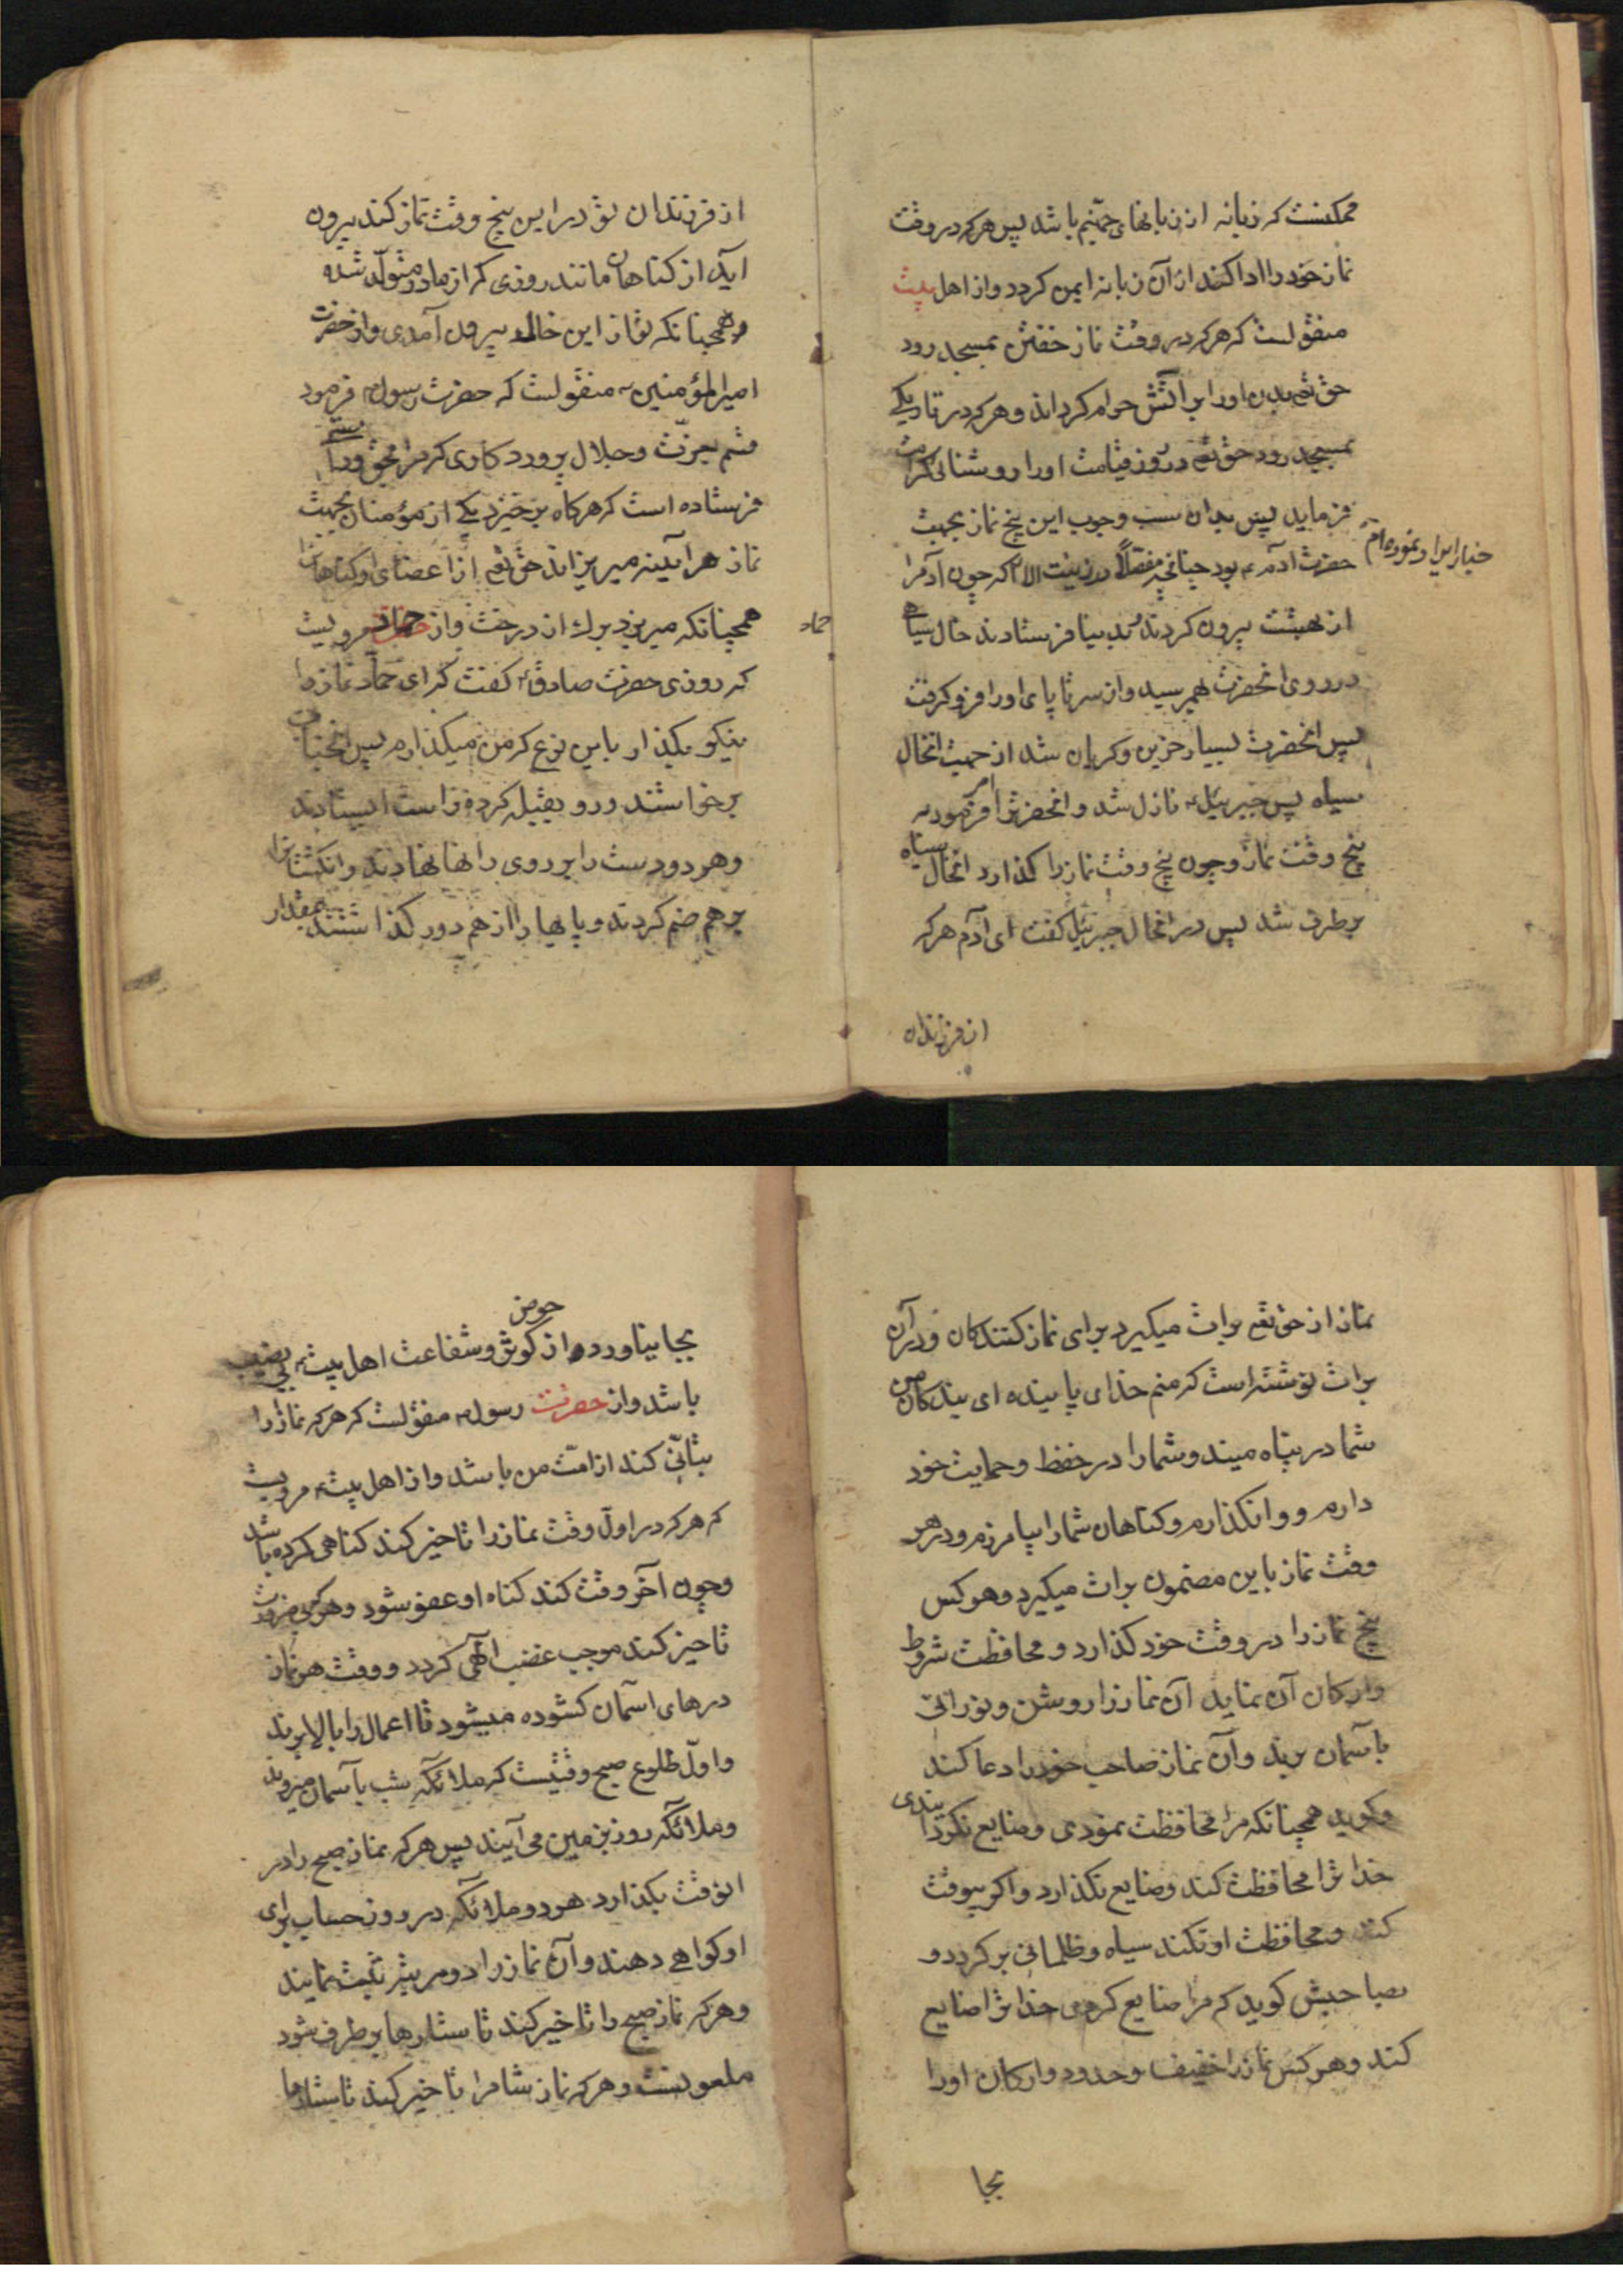 ممکنست که زبانه از زبانهای جهنّم باشد پس هرکه در وقت
نماز خود را ادا کند از آن زبانه ایمن کردد و از اهل بیت
منقولست که هرکه در وقت نماز خفتن بمسجد رود
حق تع بدن او را بر آتش حرام کرداند و هرکه در تاریکی
بمسجد رود حق تع در روز قیامت او را روشنائی کرامت
فرماید پس بدان سبب وجوب این پنج نماز بجهت
حضرت آدم ع بود چنانچه مفصّلاً در زینت الا که چون آدم را
از بهشت بیرون کردند بدنیا فرستادند خال سیاهی
در روی انحضرت بهم رسید و از سر تا پای او را فرو کرفت
پس انحضرت بسیار حزین و کریان شد از جهت انخال
سیاه پس جبرئیل ع نازل شد و انحضرت را امر فرمود به
پنج وقت نماز و چون پنج وقت نماز را کذارد انخال سیاه
برطرف شد پس در انحال جبرئیل کفت ای آدم هرکه
از فرزندان
از فرزندان تو در این پنج وقت نماز کند بیرون
آید از کناهان مانند روزی که از مادر متولّد شده
و همچنانکه تو از این خال بیرون آمدی و از حضرت
امیرالمؤمنین ع منقولست که حضرت رسول ص فرمود
قسم بعزّت و جلال پروردکاری که مرا بحق و راستی
فرستاده است که هرکاه برخیزد یکی از مؤمنان بجهت
نماز هرآینه میریزاند حق تع از اعضای او کناهانرا
همچنانکه میریزد برک از درخت و از حماد مرویست
حماد
که روزی حضرت صادق ع کفت که ای حماد نماز را
نیکو بکذار باین نوع که من میکذارم پس انجناب
برخواستند و رو بقبله کرده راست ایستادند
و هر دو دست را بر روی رانها نهادند و انکشتانرا
بر هم ضم کردند و پاها را از هم دور کذاشتند بمقدار
نماز از حق تع برات میکیرد برای نماز کنندکان و در آن
برات نوشته است که منم خدای پاینده ای بندکان من
شما در پناه منید و شما را در حفظ و حمایت خود
دارم و وانکذارم و کناهان شما را بیامرزم و در هر
وقت نماز باین مضمون برات میکیرد و هر کس
پنج نماز را در وقت خود کذارد و محافظت شروط
و ارکان آن نماید آن نماز را روشن و نورانی
بآسمان برند و آن نماز صاحب خود را دعا کند
و کوید همچنانکه مرا محافظت نمودی و ضایع نکردانیدی
خدا ترا محافظت کند و ضایع نکذارد و اکر بیوقت
کند و محافظت او نکند سیاه و ظلمانی برکردد و
بصاحبش کوید که مرا ضایع کردی خدا ترا ضایع
کند و هر کس نماز را خفیف و حدود و ارکان او را
بجا
بجا نیاورد از حوض کوثر و شفاعت اهل بیت ع بی نصیب
باشد و از حضرت رسول ص منقولست که هرکه نماز را
بتأنّی کند از امّت من باشد و از اهل بیت ع مرویست
که هرکه در اوّل وقت نماز را تاخیر کند کناهی کرده باشد
و چون آخر وقت کند کناه او عفو شود و هرکه بی ضرورت
تاخیر کند موجب غضب الهی کردد و وقت هر نماز
درهای آسمان کشوده میشود تا اعمال را بالا برند
و اوّل طلوع صبح وقتیست که ملائکه شب بآسمان میروند
و ملائکه روز بزمین می آیند پس هرکه نماز صبح را در
انوقت بکذارد هر دو ملائکه در روز حساب برای
او کواهی دهند و آن نماز را دو مرتبه ثبت نمایند
و هرکه نماز صبح را تاخیر کند تا ستارها برطرف شود
ملعونست و هرکه نماز شام را تاخیر کند تا ستارها